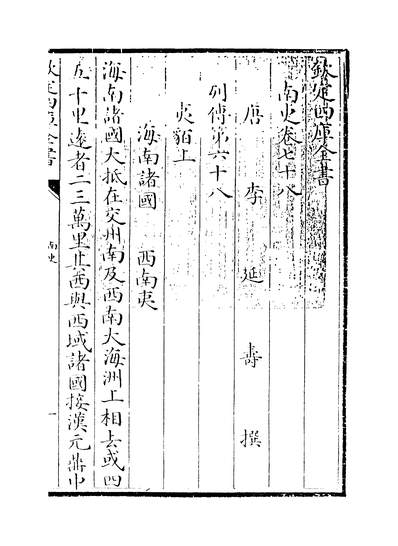 欽定四庫全書
南史卷七十八
唐李延壽撰
列傳第六十八
夷貊上
海南諸國 西南夷
海南諸國大抵在交州南及西南大海洲上相去或四
五十里遠者二三萬里其西與西域諸國接漢元鼎中
欽定四庫全書
南史
一